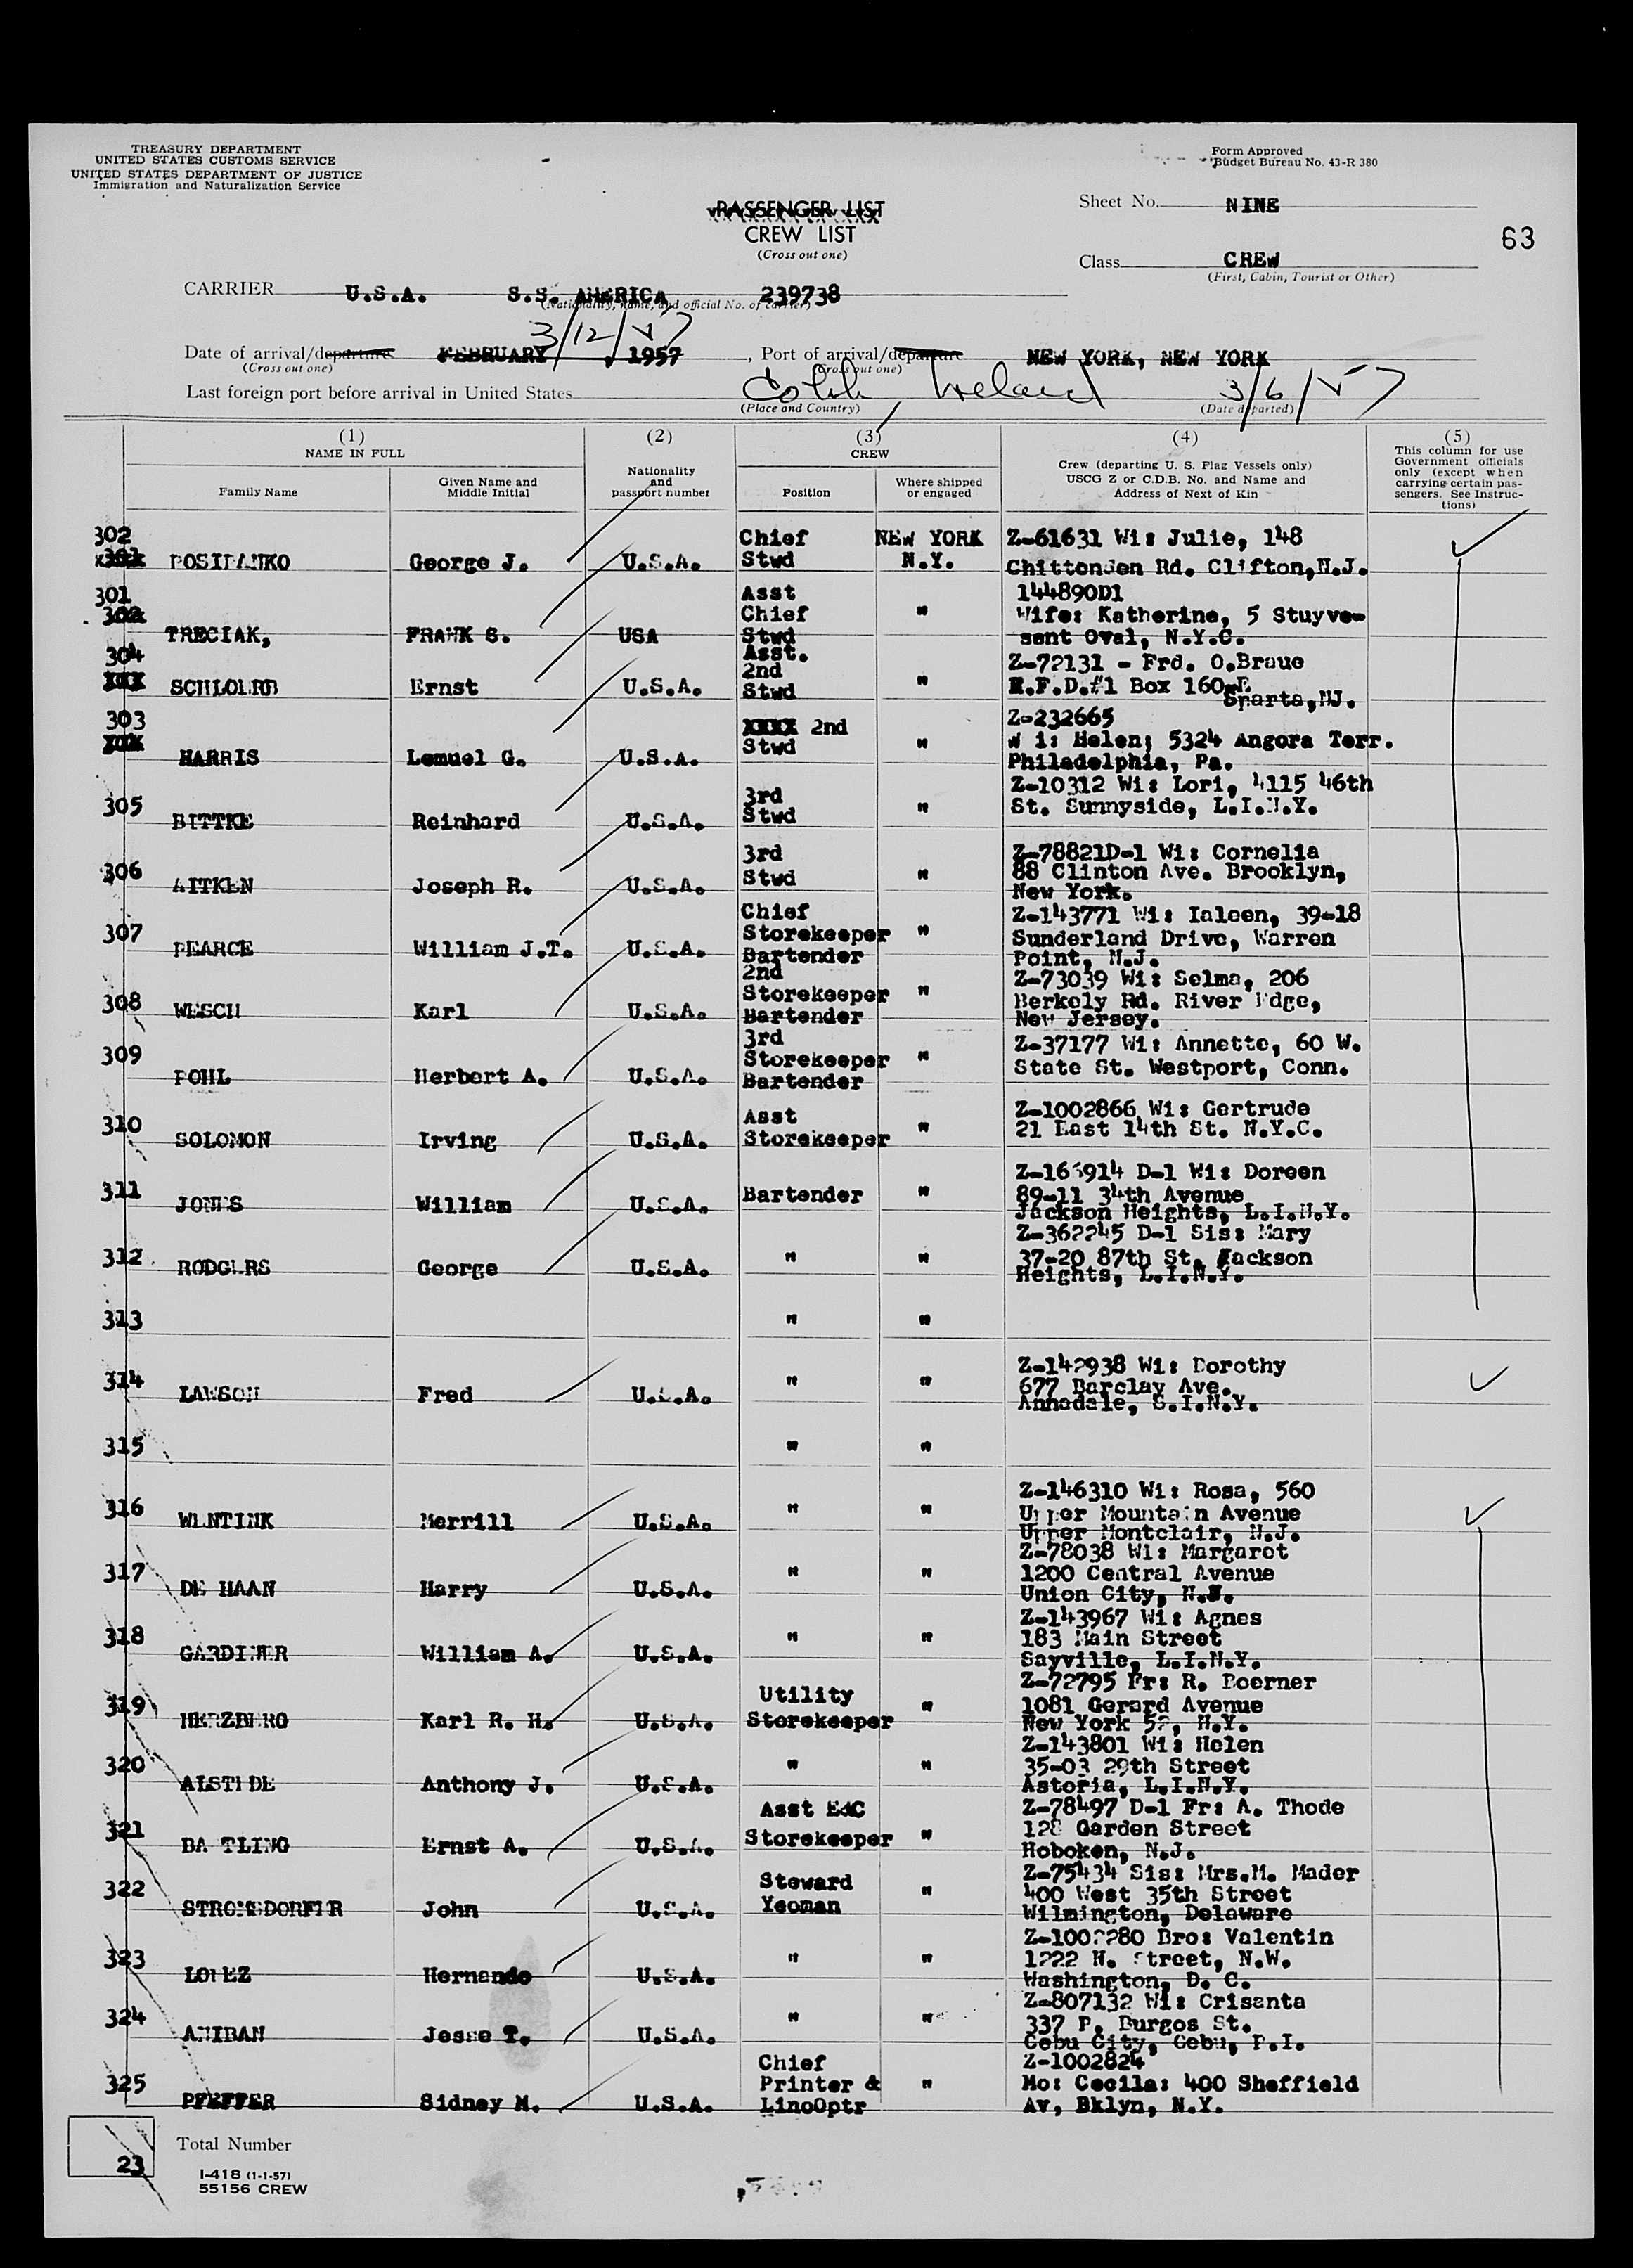 TREASURY DEPARTMENT
UNITED STATES CUSTOMS SERVICE
UNITED STATES DEPARTMENT OF JUSTICE
Immigration and Naturalization Service
Form Approved
Budget Bureau No. 43-R 380
PASSENGER LIST
CREW LIST
(Cross out one)
Sheet No. NINE
63
Class CREW
(First, Cabin, Tourist or Other)
CARRIER U.S.A. S.S. AMERICA 239738
(Nationality, name, and official No. of carrier)
3/12/57
Date of arrival/departure FEBRUARY , 1957, Port of arrival/departure NEW YORK, NEW YORK
(Cross out one) (Cross out one)
Last foreign port before arrival in United States Cobh, Ireland 3/6/57
(Place and Country) (Date departed)
(1) (2) (3) (4) (5)
NAME IN FULL
Family Name
Given Name and Middle Initial
Nationality and passport number
CREW
Position
Where shipped or engaged
Crew (departing U. S. Flag Vessels only)
USCG Z or C.D.B. No. and Name and
Address of Next of Kin
This column for use
Government officials
only (except when
carrying certain pas-
sengers. See Instruc-
tions)
302 George J. U.S.A. Chief Stwd NEW YORK N.Y. Z-61631 Wi: Julie, 148
Chittenden Rd. Clifton, N.J.
301 302 TRECIAK, FRANK S. USA Asst Chief Stwd " 144890D1
Wife: Katherine, 5 Stuyve-
sant Oval, N.Y.C.
304 Ernst U.S.A. Asst. 2nd Stwd " Z-72131 - Frd. O.Braue
R.F.D.#1 Box 160-E
Sparta, NJ.
303 HARRIS Lemuel G. U.S.A. XXXX 2nd Stwd " Z-232665
W i: Helen; 5324 Angora Terr.
Philadelphia, Pa.
305 BITTKE Reinhard U.S.A. 3rd Stwd " Z-10312 Wi: Lori, 4115 46th
St. Sunnyside, L.I.N.Y.
306 AITKEN Joseph R. U.S.A. 3rd Stwd " Z-78821D-1 Wi: Cornelia
88 Clinton Ave. Brooklyn,
New York.
307 PEARCE William J.T. U.S.A. Chief Storekeeper Bartender " Z-143771 Wi: Ialeen, 39-18
Sunderland Drive, Warren
Point, N.J.
308 WESCH Karl U.S.A. 2nd Storekeeper Bartender " Z-73039 Wi: Selma, 206
Berkely Rd. River Edge,
New Jersey.
309 POHL Herbert A. U.S.A. 3rd Storekeeper Bartender " Z-37177 Wi: Annette, 60 W.
State St. Westport, Conn.
310 SOLOMON Irving U.S.A. Asst Storekeeper " Z-1002866 Wi: Gertrude
21 East 14th St. N.Y.C.
311 JONES William U.S.A. Bartender " D-1 Wi: Doreen
89-11 34th Avenue
Jackson Heights, L.I.N.Y.
312 RODGERS George U.S.A. " " Z-362245 D-1 Sis: Mary
37-20 87th St. Jackson
Heights, L.I.N.Y.
313 " "
314 LAWSON Fred U.S.A. " " Z-142938 Wi: Dorothy
677 Barclay Ave.
Annadale, S.I.N.Y.
315 " "
316 WENTINK Merrill U.S.A. " " Z-146310 Wi: Rosa, 560
Upper Mountain Avenue
Upper Montclair, N.J.
317 DE HAAN Harry U.S.A. " " Z-78038 Wi: Margaret
1200 Central Avenue
Union City, N.J.
318 GARDINER William A. U.S.A. " " Z-143967 Wi: Agnes
183 Main Street
Sayville, L.I.N.Y.
319 HERZBERG Karl R. H. U.S.A. Utility Storekeeper " Z-72795 Fr: R. Boerner
1081 Gerard Avenue
New York 52, N.Y.
320 Anthony J. U.S.A. " " Z-143801 Wi: Helen
35-03 29th Street
Astoria, L.I.N.Y.
321 Ernst A. U.S.A. Asst E&C Storekeeper " Z-78497 D-1 Fr: A. Thode
128 Garden Street
Hoboken, N.J.
322 STROMSDORFER John U.S.A. Steward Yeoman " Z-75434 Sis: Mrs.M. Mader
400 West 35th Street
Wilmington, Delaware
323 LOPEZ Hernando U.S.A. " " Bro: Valentin
1222 N. Street, N.W.
Washington, D. C.
324 ANIBAN Jesse T. U.S.A. " " Z-807132 Wi: Crisanta
337 P. Burgos St.
Cebu City, Cebu, P.I.
325 PFEFFER Sidney M. U.S.A. Chief Printer & LinoOptr " Z-1002824
Mo: Cecila: 400 Sheffield
Av, Bklyn, N.Y.
23 Total Number
I-418 (1-1-57)
55156 CREW